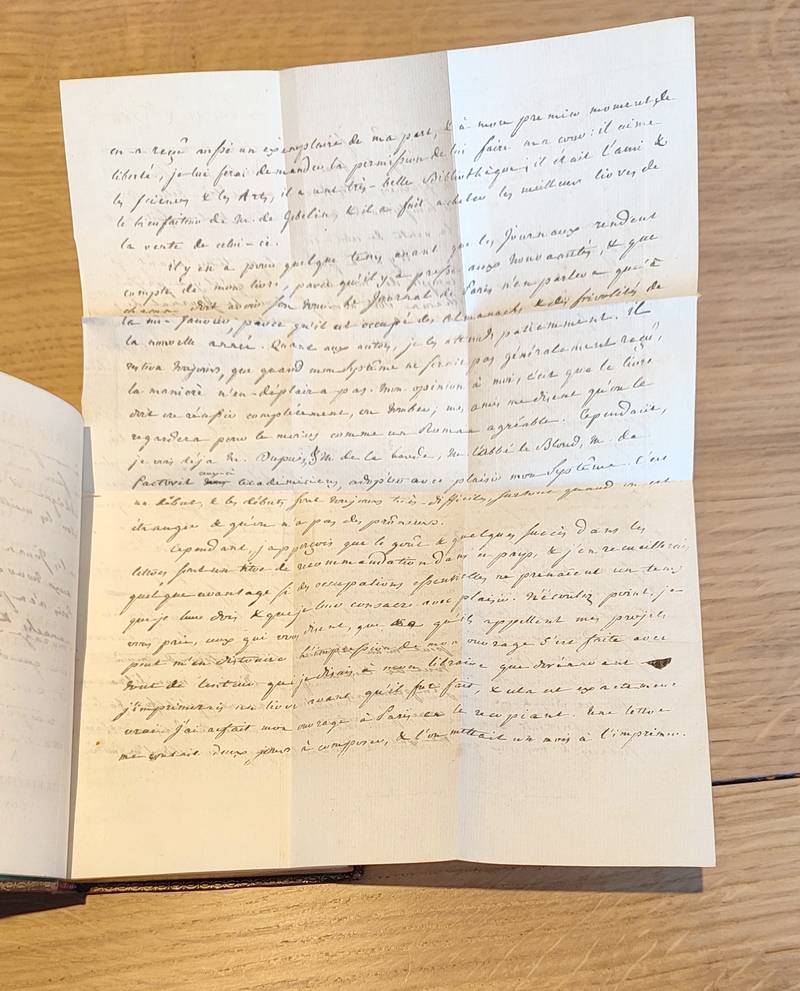 en a reçu aussi un exemplaire de ma part, & à mon premier moment de
liberté, je lui ferai demander la permission de lui faire ma cour: il aime
les sciences & les Arts, il a une très-belle Bibliothèque; il était l'ami &
le bienfaiteur de M. de Gébelin, & il a fait acheter les meilleurs livres de
la vente de celui-ci.
il y en a pour quelque tems avant que les Journaux rendent
compte de mon livre, parce qu'il y a presse aux nouveautés, & que
chacune doit avoir son tour. Le Journal de Paris n'en parlera qu'à
la mi-Janvier, parce qu'il est occupé des Almanachs & des frivolités de
la nouvelle année. Quant aux autres, je les attends patiemment. Il
restera toujours, que quand mon Systême ne serait pas généralement reçu,
la maniere n'en déplaira pas. Mon opinion à moi, c'est que le livre
doit ou réussir complètement, ou tomber; mes amis me disent qu'on le
regardera pour le moins comme un Roman agréable. Cependant,
je vois déja M. Dupuis, M. de la Lande, M. l'abbé le Blond, M. de
Pastoret académicien, adopter avec plaisir mon Systême. C'est
un début, & les débuts sont toujours très-difficiles, surtout quand on est
étranger & qu'on n'a pas des prôneurs.
Cependant, j'apperçois que le goût & quelques succès dans les
lettres sont un titre de recommandation dans ce pays, & j'en recueillerais
quelque avantage si des occupations essentielles ne prenaient un tems
que je leur dois & que je leur consacre avec plaisir. N'écoutez point, je
vous prie, ceux qui vous disent, que ce qu'ils appellent mes projets
peut m'en distraire. L'impression de mon ouvrage s'est faite avec
tant de lenteur que je disais à mon libraire que dorénavant
j'imprimerais un livre avant qu'il fut fait, & cela est exactement
vrai. J'ai refait mon ouvrage à Paris en le recopiant. Une lettre
me coutait deux jours à composer, & l'on mettait un mois à l'imprimer.